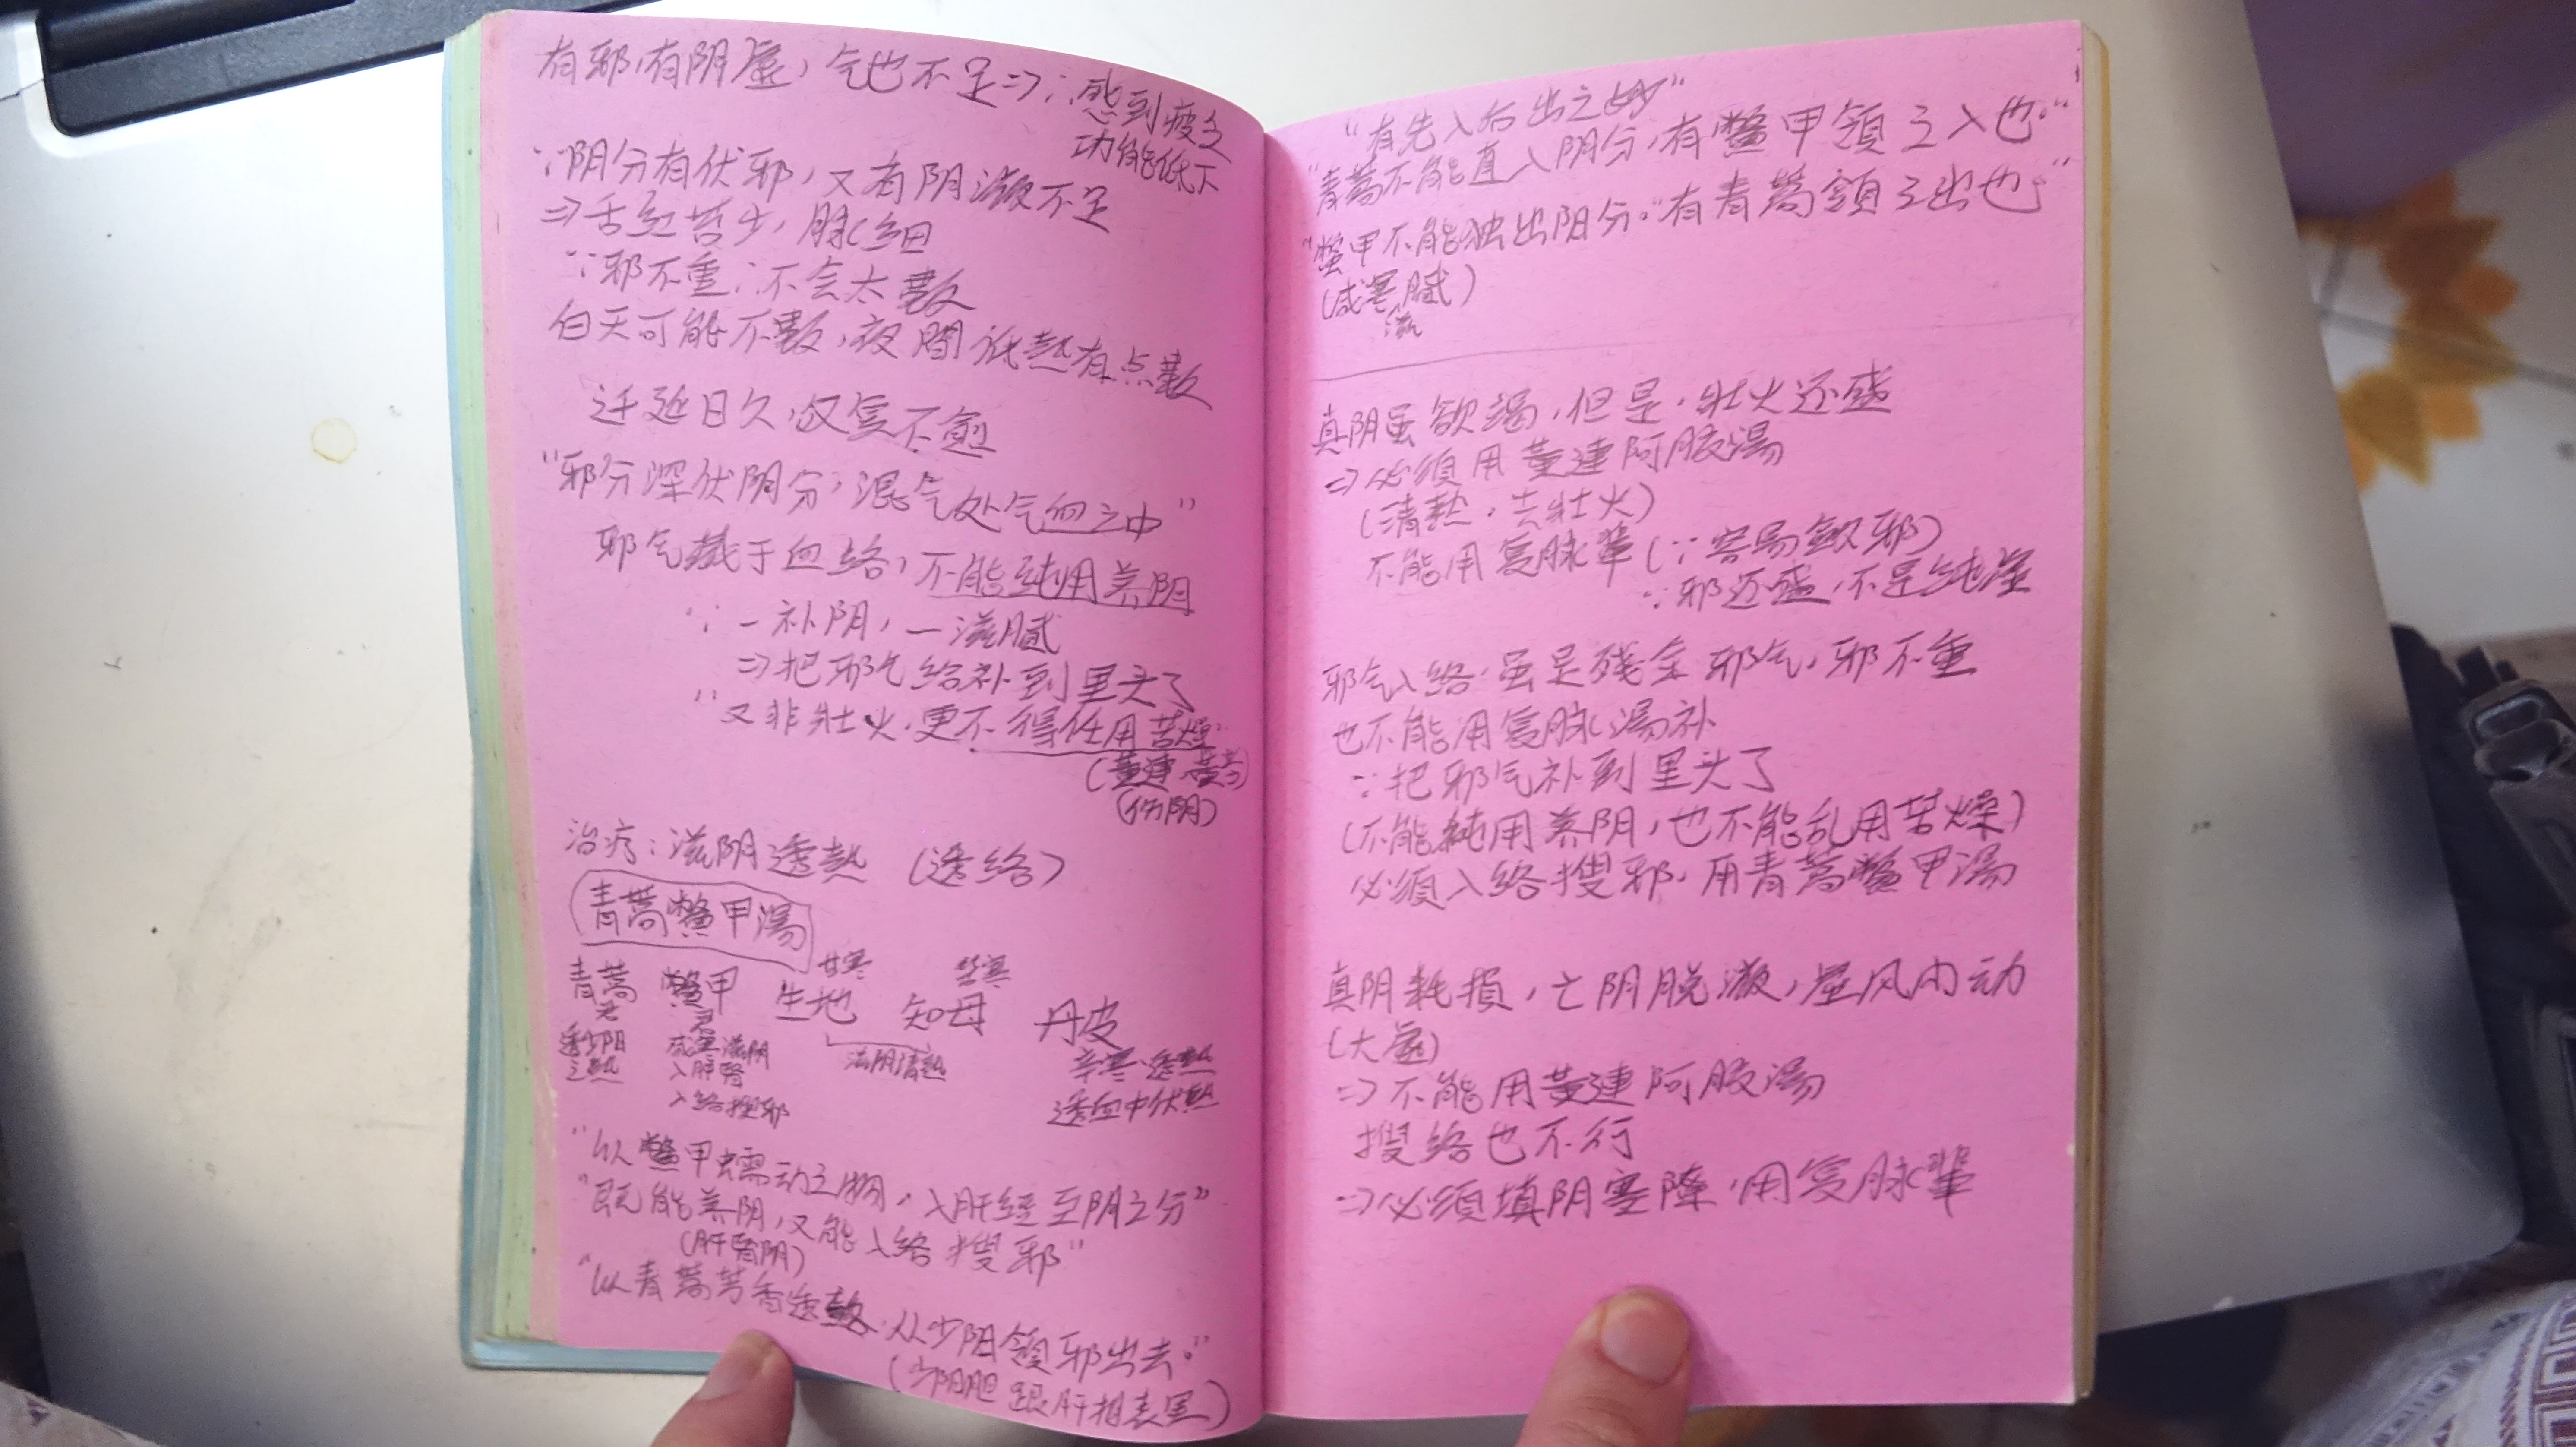 有邪,有阴虚,气也不足⇒∴感到疲乏
功能低下
∵阴分有伏邪,又有阴液不足
⇒舌红苔少,脉细
∵邪不重∴不会太数
白天可能不数,夜間低熱有点数
迁延日久,反复不愈
"邪分深伏阴分,混气处气血之中"
邪气藏于血络,不能纯用养阴
∵一补阴,一滋腻
⇒把邪气给补到里头了
"又非壮火,更不得任用苦燥"
(黄連、黄芩)
(伤阴)
治疗:滋阴透熱 (透络)
青蒿鳖甲湯
甘寒 苦寒
青蒿 鳖甲 生地 知母 丹皮
君 君
透少阳之熱
咸寒滋阴
入肝腎
入络搜邪
滋阴清熱
辛寒、透熱
透血中伏熱
"以鳖甲蠕动之物,入肝经至阴之分"
"既能养阴,又能入络搜邪"
(肝腎阴)
"以青蒿芳香透熱,从少阳領邪出去。"
(少阳胆跟肝相表里)
"有先入后出之妙"
"青蒿不能直入阴分,有鳖甲領之入也。"
"鳖甲不能独出阳分。"有青蒿領之出也"
(咸寒腻)
滋
真阴虽欲竭,但是,壮火还盛
⇒必须用黄連阿胶湯
(清热,去壮火)
不能用复脉辈(∵容易斂邪)
∵邪还盛,不是纯虚
邪气入络,虽是残余邪气,邪不重
也不能用复脉湯补
∵把邪气补到里头了
(不能純用养阴,也不能乱用苦燥)
必须入络搜邪,用青蒿鳖甲湯
真阴耗損,亡阴脱液,虚风内动
(大虚)
⇒不能用黄連阿胶湯
搜络也不行
⇒必须填阴塞隙,用复脉辈